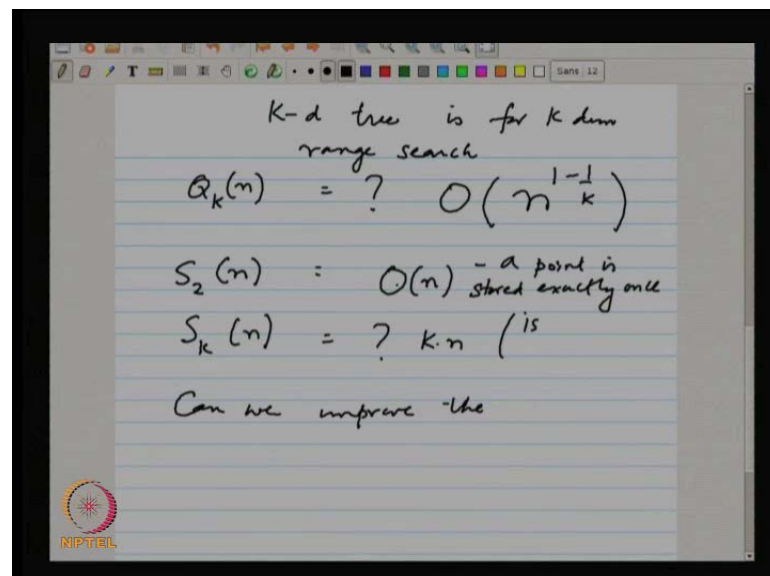 T Sans 12
K-d tree is for K dim
range search
Q_K(n) = ? O(n^{1-\frac{1}{K}})
S_2(n) = O(n) - a point is
stored exactly once
S_K(n) = ? K.n (is
Can we improve the
NPTEL